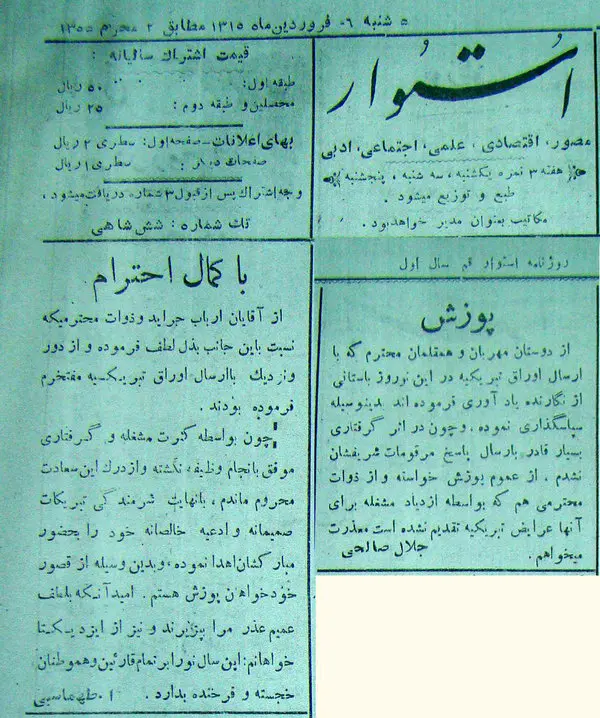 ۵ شنبه ۶- فروردین ماه ۱۳۱۵ مطابق ۲ محرم ۱۳۵۵
استوار
مصور، اقتصادی، علمی، اجتماعی، ادبی
هفته ۳ نمره یکشنبه، سه شنبه، پنجشنبه
طبع و توزیع میشود .
مکاتیب بعنوان مدیر خواهدبود .
قیمت اشتراک سالیانه :
طبقه اول: ۵۰ ریال
محصلین و طبقه دوم : ۲۵ ریال
بهای اعلانات-صفحه اول: سطری ۲ ریال
صفحات دیگر : سطری ۱ ریال
وجه اشتراک پس از قبول ۳ شماره دریافت میشود ،
تک شماره : شش شاهی
روزنامه استوار قم سال اول
پوزش
از دوستان مهربان و همقلمان محترم که با
ارسال اوراق تبریکیه در این نوروز باستانی
از نگارنده یاد آوری فرموده اند بدینوسیله
سپاسگذاری نموده ، وچون در اثر گرفتاری
بسیار قادر بارسال پاسخ مرقومات شریفشان
نشدم . از عموم پوزش خواسته و از ذوات
محترمی هم که بواسطه ازدیاد مشغله برای
آنها عرایض تبریکیه تقدیم نشده است معذرت
میخواهم . جلال صالحی
با کمال احترام
از آقایان ارباب جراید وذوات محترمیکه
نسبت باین جانب بذل لطف فرموده و از دور
ونزدیک باارسال اوراق تبریکیه مفتخرم
فرموده بودند .
چون بواسطه کثرت مشغله و گرفتاری
موفق بانجام وظیفه نگشته وازدرک این سعادت
محروم ماندم ، بانهایت شرمندگی تبریکات
صمیمانه و ادعیه خالصانه خود را بحضور
مبارکشان اهدا نموده ، وبدین وسیله از قصور
خودخواهان پوزش هستم . امید آنکه بلطف
عمیم عذر مرا بپذیرند و نیز از ایزد یکتا
خواهانم: این سال نورا بر تمام قارئین وهموطنان
خجسته و فرخنده بدارد . ا . طهماسبی